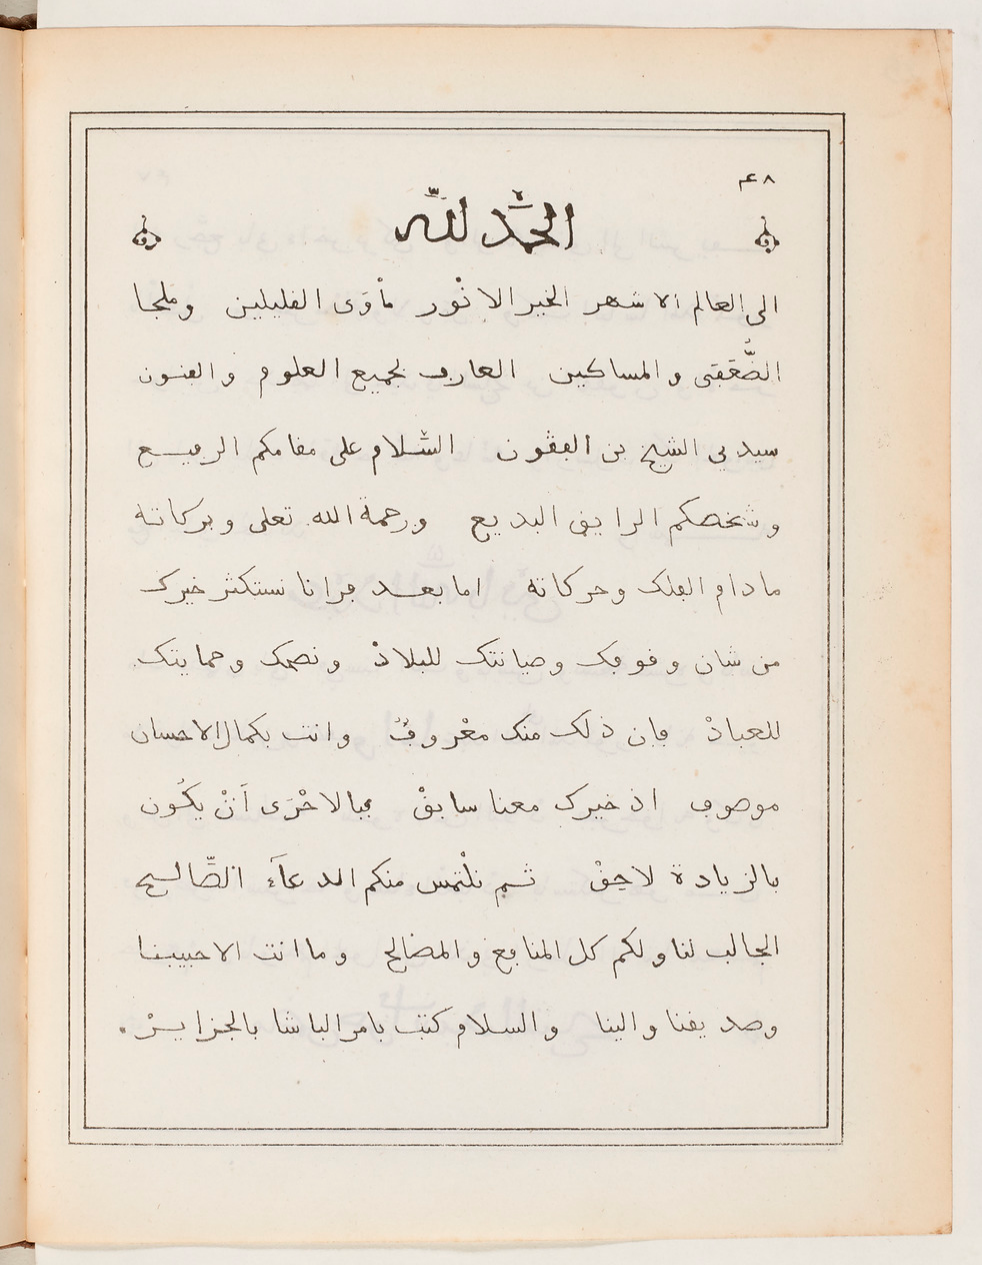 ٤٨
الحمد لله
الى العالم الاشهر الخير الانْور مأوَى القليلين وملجا
الضُّعَفى والمساكين العارف لجميع العلوم والفنون
سيدي الشيخ بن الفڨون السَّلام على مقامكم الرفيع
وشخصكم الرايق البديع ورحمة الله تعلى وبركاته
مادام الفلك وحركاته اما بعد فرانا نستكثر خيرك
من شان وقوفك وصيانتك للبلادْ ونصحك وحمايتك
للعبادْ فإن ذلك منك معْروفٌ وانت بكمال الاحسان
موصوف اذ خيرك معنا سابقْ فبالاحْرَى اَنْ يكُون
بالزيادة لاحقْ ثم نلْتمس منكم الدعآء الصَّالح
الجالب لنا ولكم كل المنافع والمصالح وما انت الا حبيبنا
وصديقنا والينا والسلام كتب بامر الباشا بالجزايرْ.